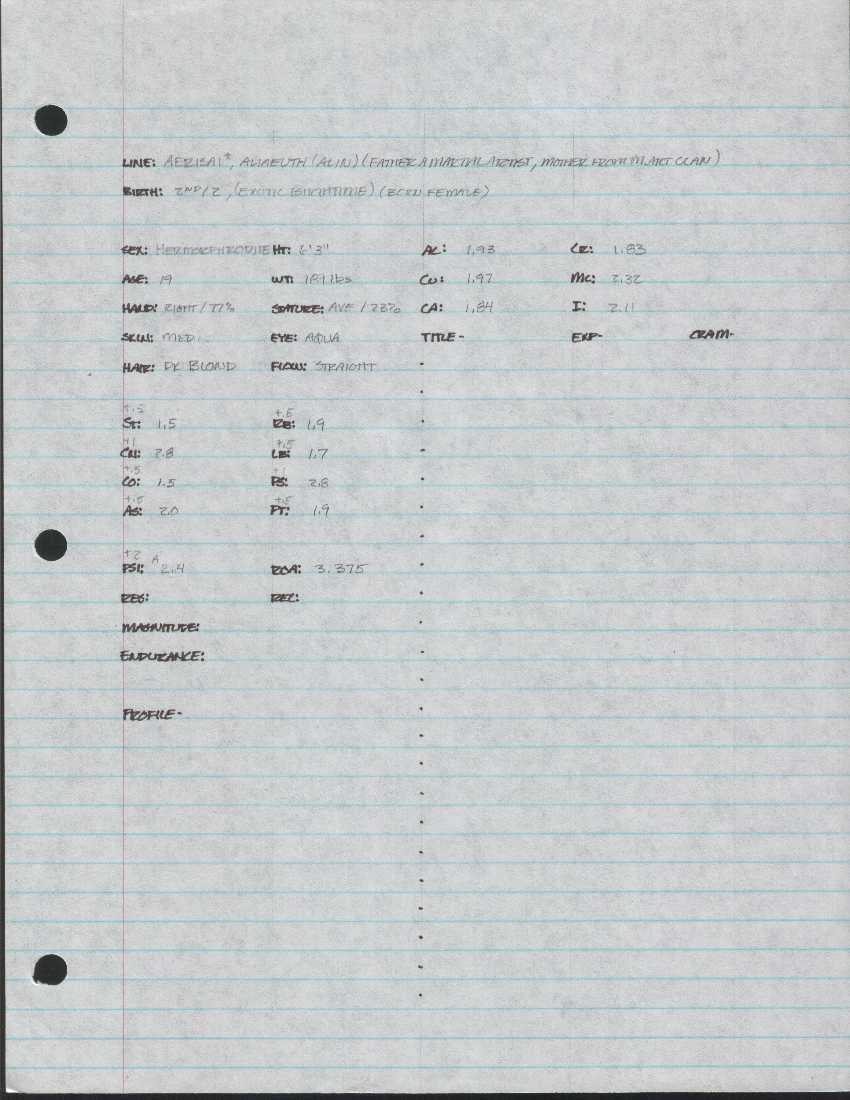 LINE: AERISAI*, ALIAEUTH (ALIN) (FATHER A MARTIAL ARTIST, MOTHER FROM M. ART CLAN)
BIRTH: 2ND/2, (EXOTIC BIRTHTIME) (BORN FEMALE)
SEX: HERMORPHRODITE HT: 6'3" AL: 1.93 CR: 1.83
AGE: 19 WT: 189 lbs CU: 1.97 MC: 2.32
HAND: RIGHT/77% STATURE: AVE/23% CA: 1.84 I: 2.11
SKIN: MED. EYE: AQUA TITLE- EXP- CRAM-
HAIR: DK BLOND FLOW: STRAIGHT
+.5 +.5
ST: 1.5 RE: 1.9
+1 +.5
CN: 2.8 LE: 1.7
+.5 +1
CO: 1.5 PS: 2.8
+.5 +.5
AS: 2.0 PT: 1.9
+2 A
PSI: 2.4 ROA: 3.375
REG: REC:
MAGNITUDE:
ENDURANCE:
PROFILE-